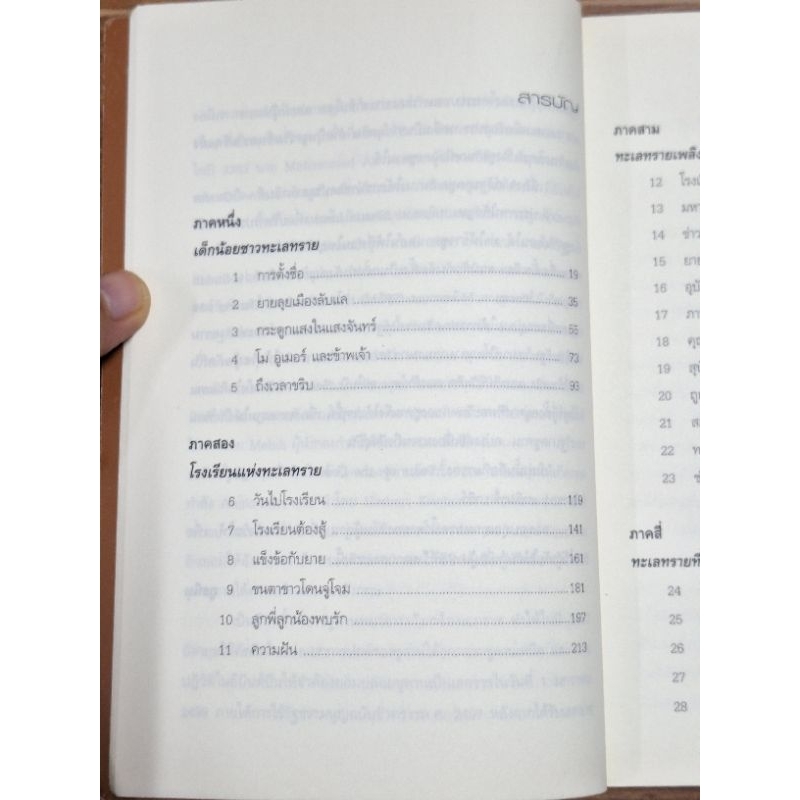 สารบัญ
ภาคหนึ่ง
เด็กน้อยชาวทะเลทราย
1 การตั้งชื่อ 19
2 ยายลุยเมืองลับแล 35
3 กระดูกแสงในแสงจันทร์ 55
4 โม อูเมอร์ และข้าพเจ้า 73
5 ถึงเวลาขริบ 93
ภาคสอง
โรงเรียนแห่งทะเลทราย
6 วันไปโรงเรียน 119
7 โรงเรียนต้องสู้ 141
8 แข็งข้อกับยาย 161
9 ขนตาขาวโดนจู่โจม 181
10 ลูกพี่ลูกน้องพบรัก 197
11 ความฝัน 213
ภาคสาม
ทะเลทรายเพลิง
12
13
14 ข่าว
15 ยาย
16
17
18
19
20
21
22
23
ภาคสี่
24
25
26
27
28